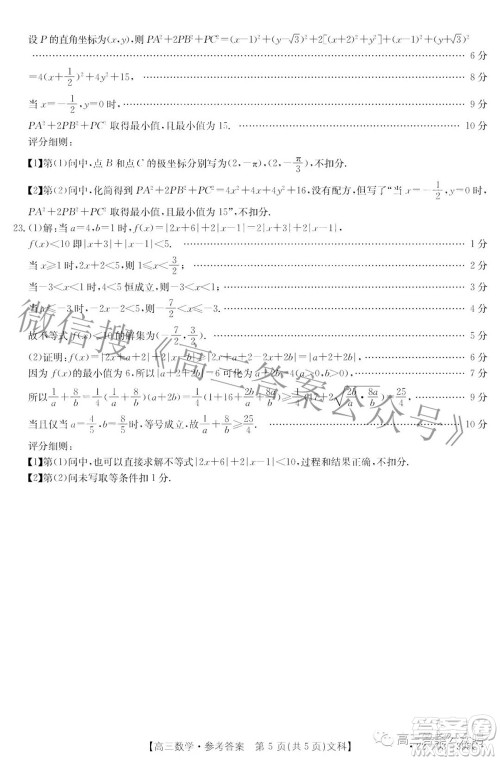 设P的直角坐标为(x,y),则PA²+2PB²+PC²=(x-1)²+(y-√3)²+2[(x+2)²+y²]+(x-1)²+(y+√3)²
6分
=4(x+1/2)²+4y²+15, 8分
当x=-1/2,y=0时, 9分
PA²+2PB²+PC²取得最小值,且最小值为15. 10分
评分细则:
【1】第(1)问中,点B和点C的极坐标分别写为(2,-π),(2,-π/3),不扣分.
【2】第(2)问中,化简得到PA²+2PB²+PC²=4x²+4x+4y²+16,没有配方,但写了“当x=-1/2,y=0时,
PA²+2PB²+PC²取得最小值,且最小值为15”,不扣分.
23.(1)解:当a=4,b=1时,f(x)=|2x+6|+2|x-1|=2|x+3|+2|x-1|,
f(x)<10即|x+3|+|x-1|<5. 1分
当x≥1时,2x+2<5,即1≤x<3/2; 2分
当-3<x<1时,4<5恒成立,则-3<x<1; 3分
当x≤-3时,-2x-2<5,即-7/2<x≤-3. 4分
故不等式f(x)<10的解集为(-7/2,3/2). 5分
(2)证明:f(x)=|2x+a+2|+2|x-b|=|2x+a+2|+|2x-2b|≥|2x+a+2-2x+2b|=|a+2b+2|, 6分
因为f(x)的最小值为6,所以|a+2b+2|=6可化为a+2b=4(a>0,b>0), 7分
所以1/a+8/b=1/4(1/a+8/b)(a+2b)=1/4(1+16+2b/a+8a/b)≥1/4(17+2√(2b/a·8a/b))=25/4, 9分
当且仅当a=4/5,b=8/5时,等号成立,故1/a+8/b≥25/4. 10分
评分细则:
【1】第(1)问中,也可以直接求解不等式|2x+6|+2|x-1|<10,过程和结果正确,不扣分.
【2】第(2)问未写取等条件扣1分.
微信搜《高三答案公众号》
【高三数学·参考答案 第5页(共5页)文科】